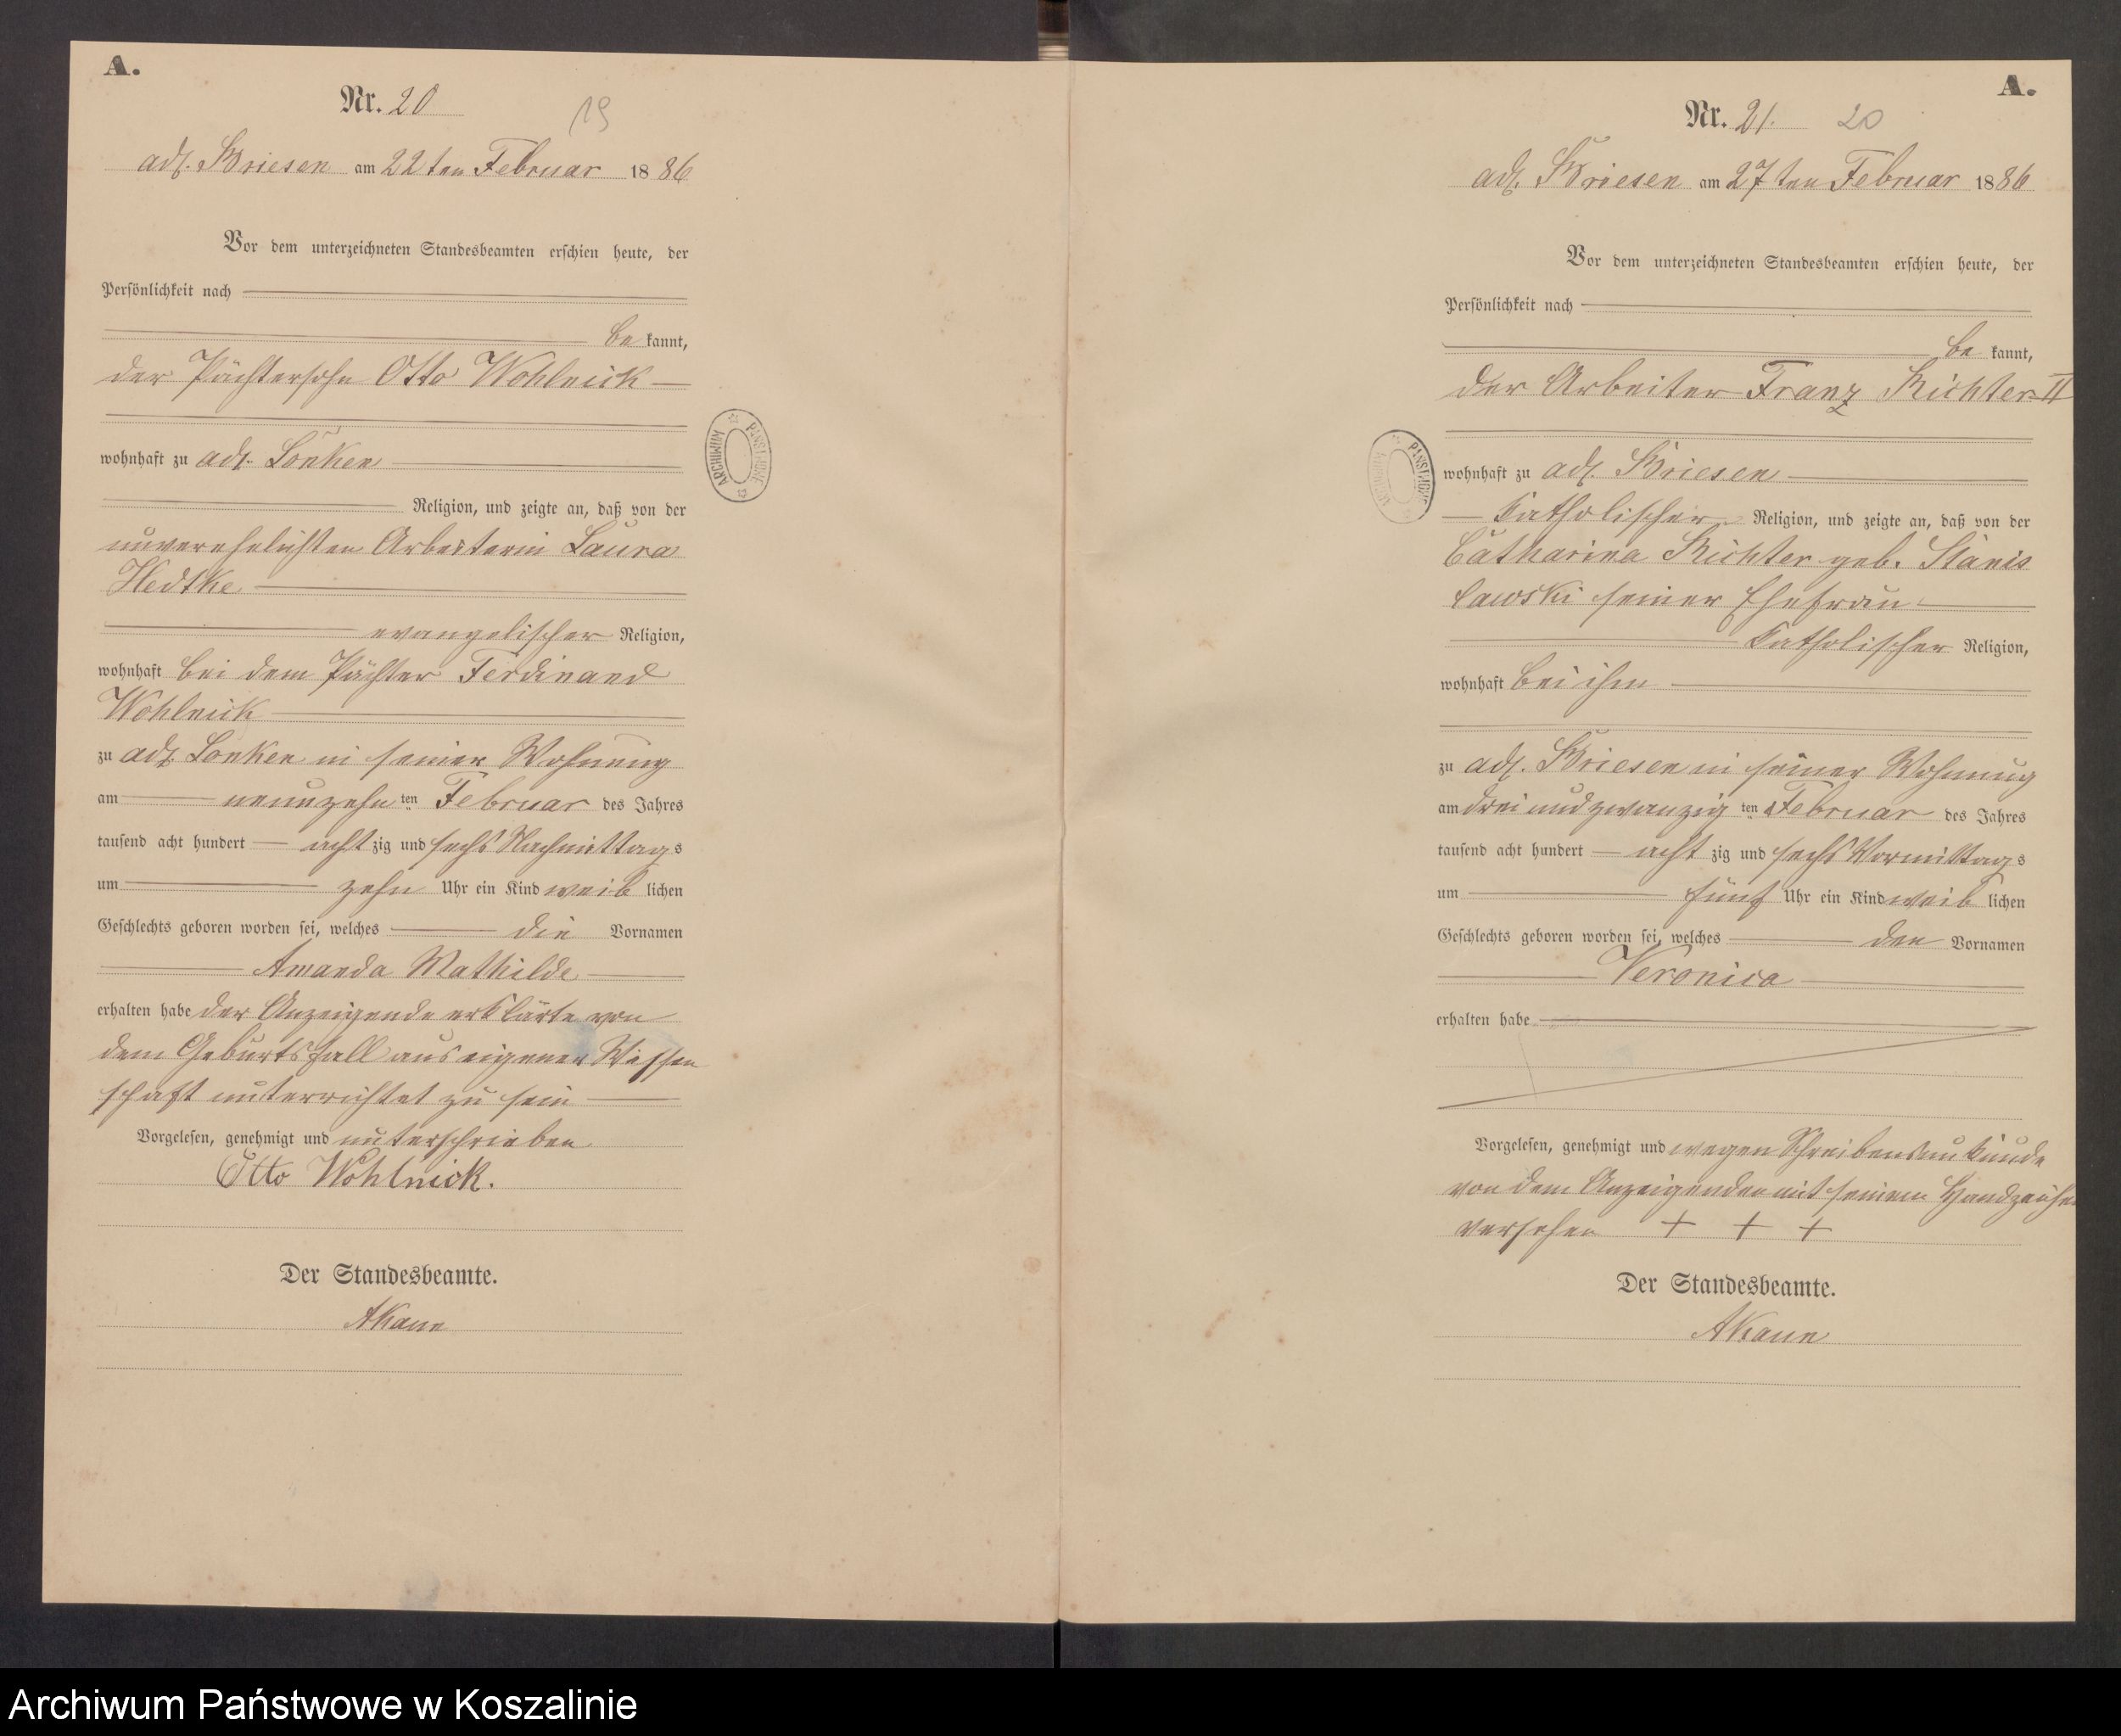 A.
Nr. 20
19
adl. Briesen am 22ten Februar 1886
Vor dem unterzeichneten Standesbeamten erschien heute, der
Persönlichkeit nach
be kannt,
der Pächtersohn Otto Wohlnick
wohnhaft zu adl. Lonken
Religion, und zeigte an, daß von der
unverehelichten Arbeiterin Laura
Hedtke
evangelischer Religion,
wohnhaft bei dem Pächter Ferdinand
Wohlnick
zu adl. Lonken in seiner Wohnung
am neunzehn ten Februar des Jahres
tausend acht hundert acht zig und sechs Nachmittags
um zehn Uhr ein Kind weib lichen
Geschlechts geboren worden sei, welches die Vornamen
Amanda Mathilde
erhalten habe der Anzeigende erklärte von
dem Geburtsfall aus eigener Wissen
schaft unterrichtet zu sein
Vorgelesen, genehmigt und unterschrieben
Otto Wohlnick.
Der Standesbeamte.
AKaun
ARCHIWUM PAŃSTWOWE
A.
Nr. 21. 20
adl. Briesen am 27ten Februar 1886
Vor dem unterzeichneten Standesbeamten erschien heute, der
Persönlichkeit nach
be kannt,
der Arbeiter Franz Richter II
wohnhaft zu adl. Briesen
Katholischer Religion, und zeigte an, daß von der
Catharina Richter geb. Stanis
lawski seiner Ehefrau
Katholischer Religion,
wohnhaft bei ihm
zu adl. Briesen in seiner Wohnung
am drei und zwanzig ten Februar des Jahres
tausend acht hundert acht zig und sechs Vormittags
um fünf Uhr ein Kind weib lichen
Geschlechts geboren worden sei, welches den Vornamen
Veronica
erhalten habe
Vorgelesen, genehmigt und wegen Schreibensunkunde
von dem Anzeigenden mit seinem Handzeichen
versehen + + +
Der Standesbeamte.
AKaun
ARCHIWUM PAŃSTWOWE
Archiwum Państwowe w Koszalinie